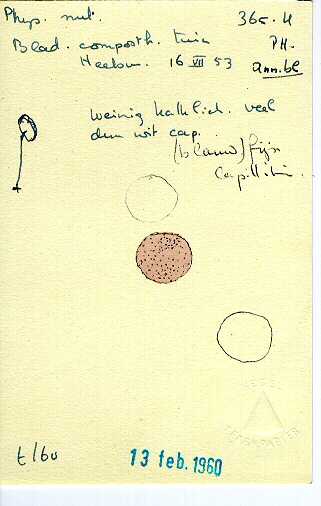 Phys. nut. 365.H
Blad. composth. tuin PH.
Heelsum. 16 VII 53 ann.bl
weinig kalklich. veel
dun wit cap.
(blauw) fijn
Capillitium.
t/60
13 feb. 1960